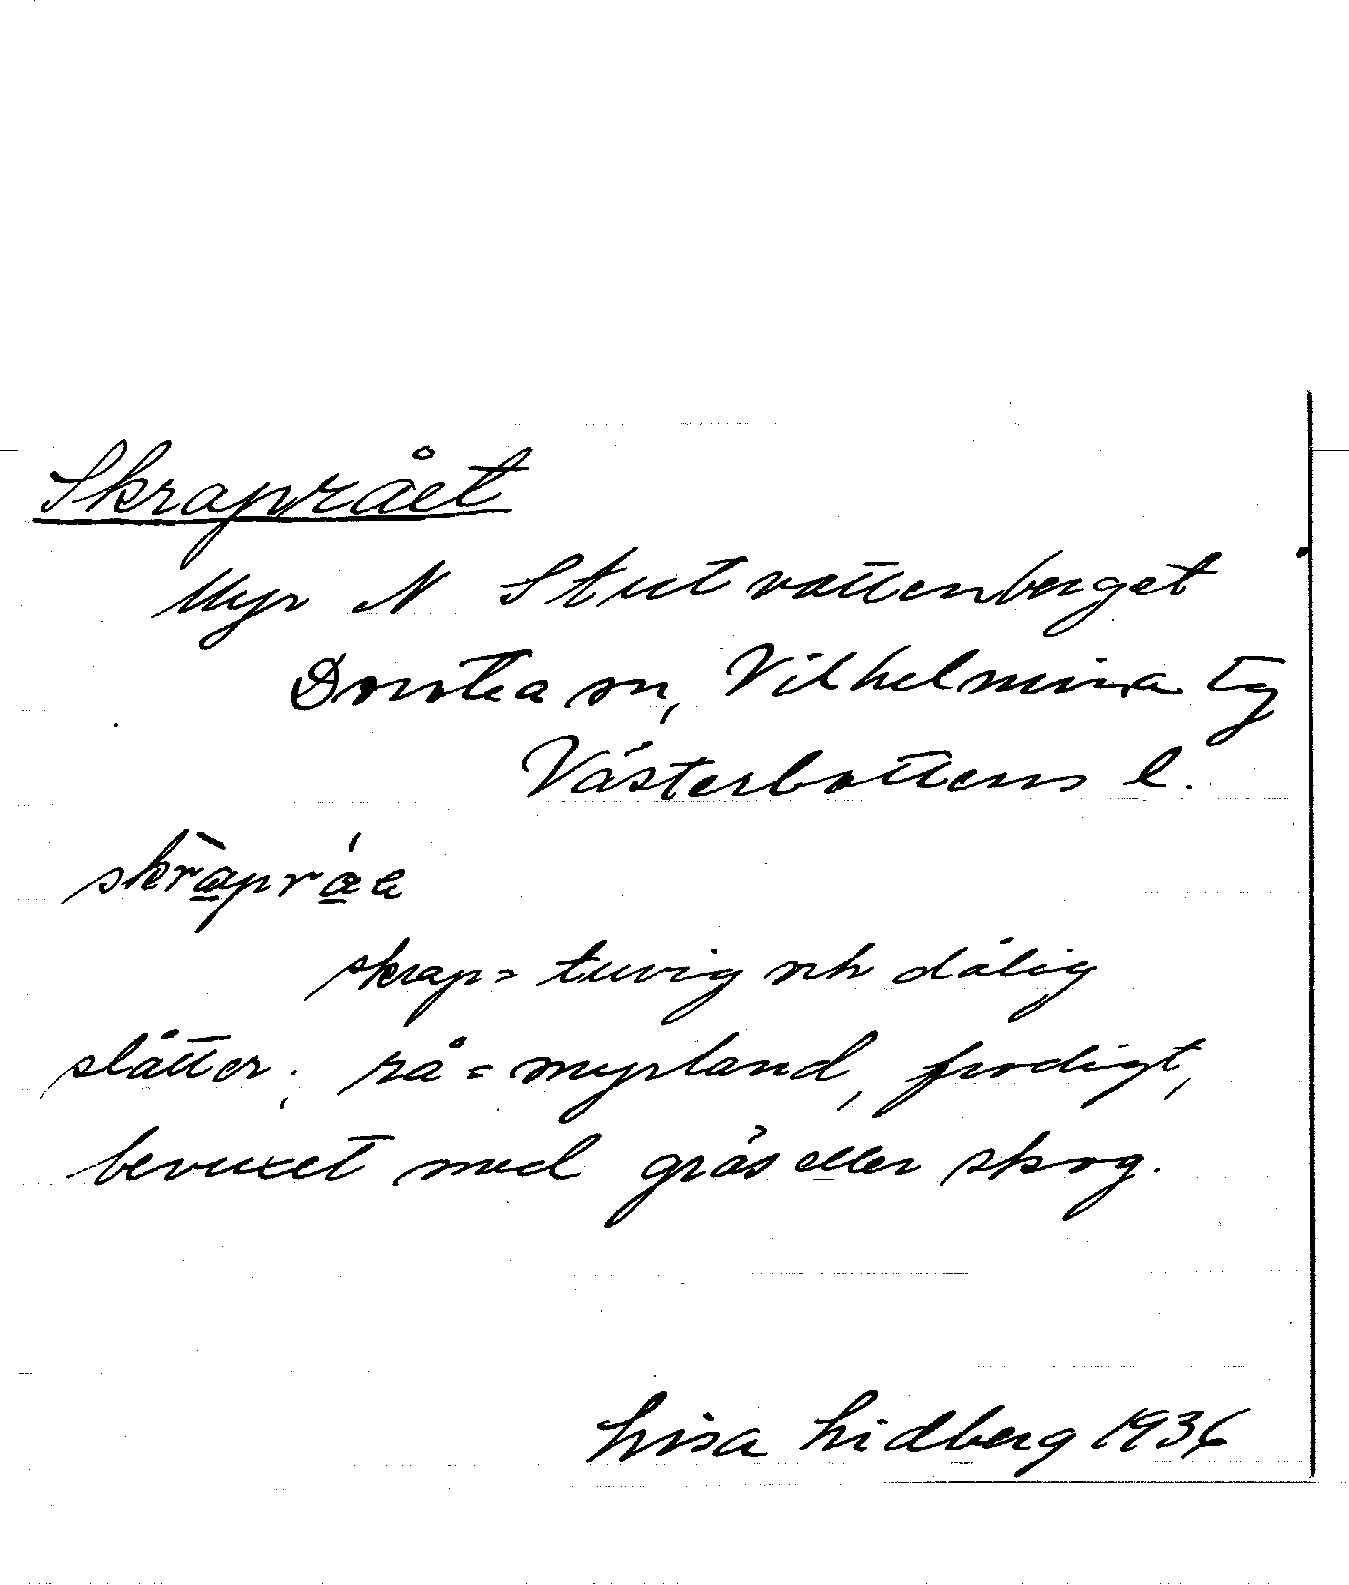 Skraprået
Myr N Stutvattenberget
Dorotea sn, Vilhelmina tg
Västerbottens l.
skràpráe
skrap = tuvig och dålig
slåtter; rå = myrland, frodigt,
bevuxet med gräs eller skog.
Lisa Lidberg 1936